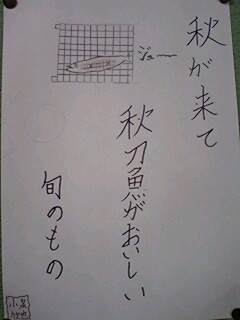 秋が来て
ジュー
秋刀魚がおいしい
旬のもの
小泉